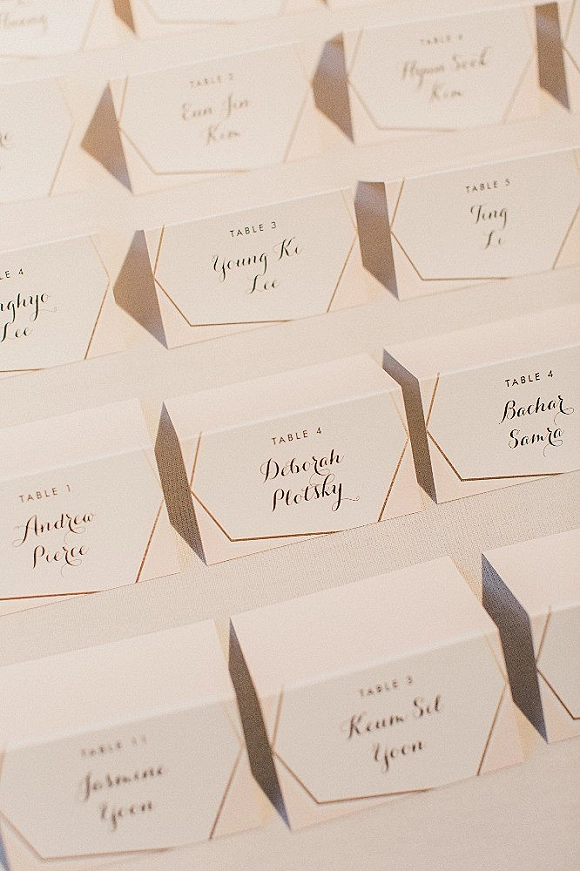 TABLE 2
Eun Jin
Kim
TABLE 4
Hyun Seok
Kim
LE 4
nghyo
Lee
TABLE 3
Young Ki
Lee
TABLE 5
Ting
Li
TABLE 1
Andrew
Pierce
TABLE 4
Deborah
Plotsky
TABLE 4
Bachar
Samra
TABLE 11
Jasmine
Yoon
TABLE 3
Keum Sil
Yoon